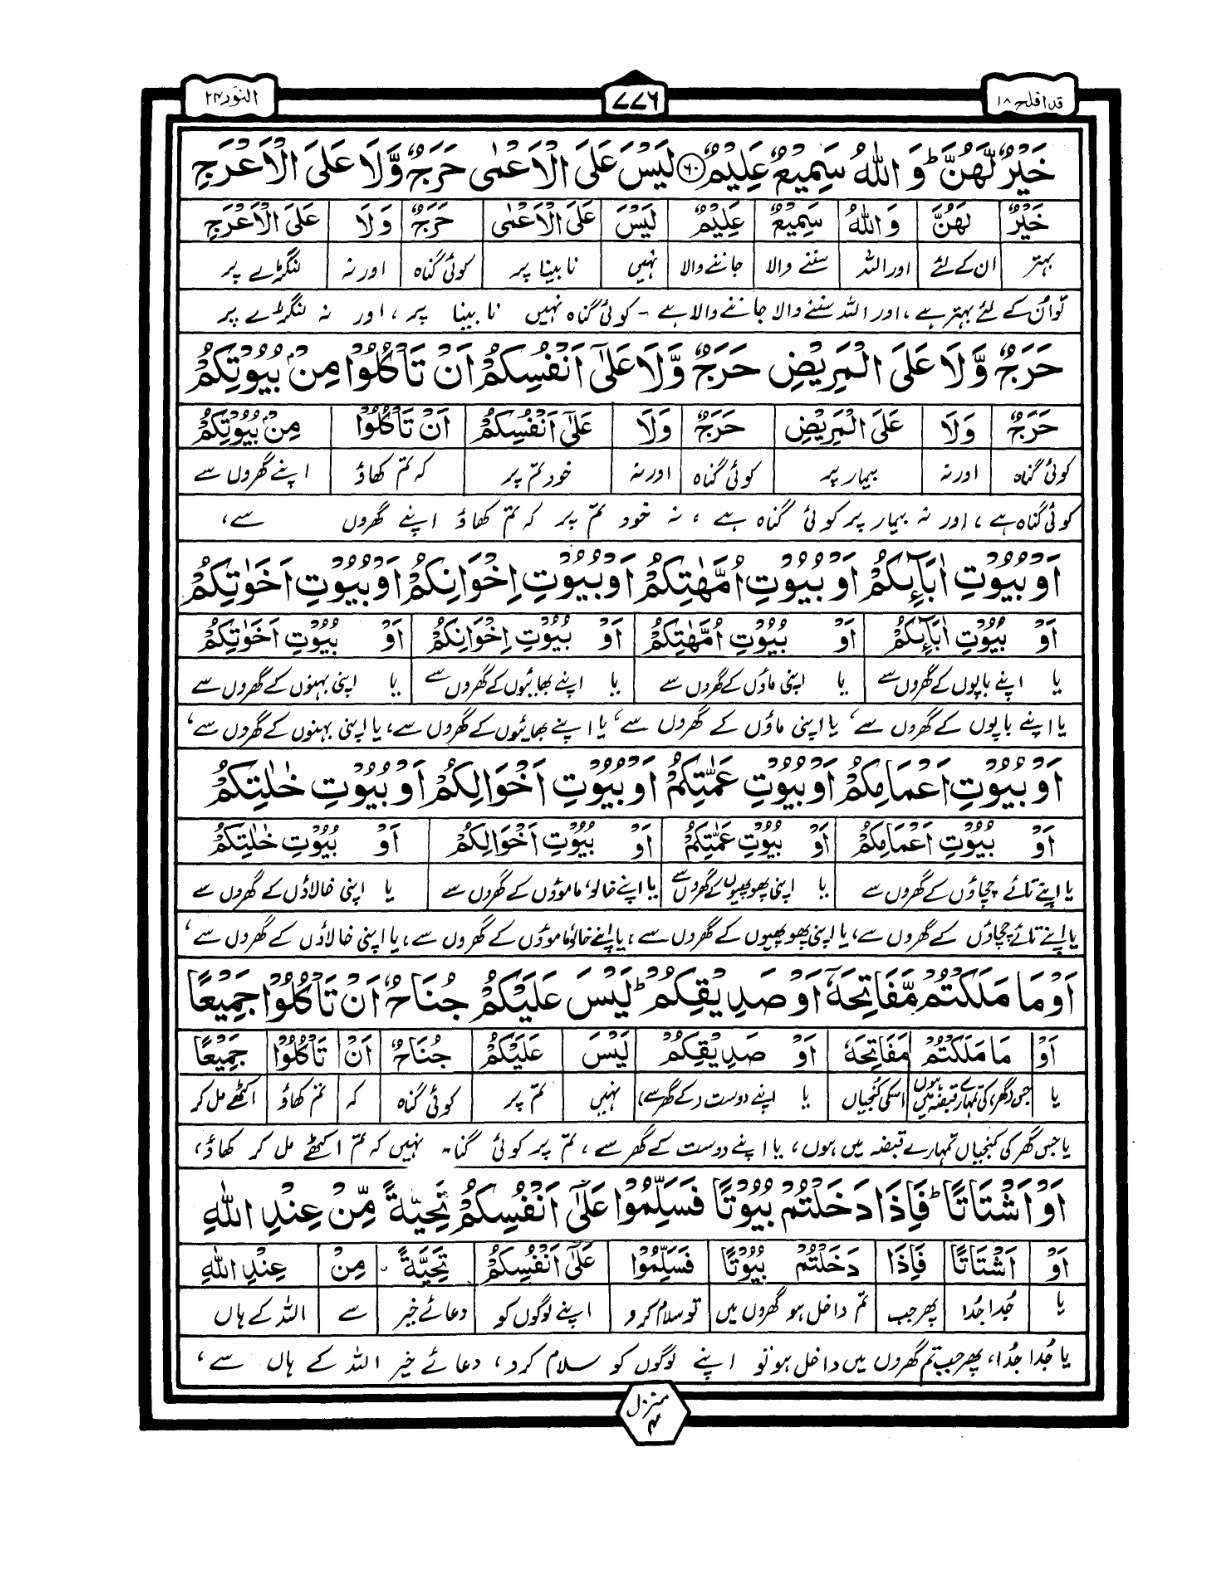 قد افلح ۱۸
۷۷۶
النور ۲۴
خَيْرٌ لَّهُنَّ ؕ وَ اللّٰهُ سَمِيْعٌ عَلِيْمٌ ۶۰ لَيْسَ عَلَى الْاَعْمٰى حَرَجٌ وَّلَا عَلَى الْاَعْرَجِ
خَيْرٌ لَهُنَّ وَاللّٰهُ سَمِيْعٌ عَلِيْمٌ لَيْسَ عَلَى الْاَعْمٰى حَرَجٌ وَلَا عَلَى الْاَعْرَجِ
بہتر ان کے لئے اور اللہ سننے والا جاننے والا نہیں نابینا پر کوئی گناہ اور نہ لنگڑے پر
تو ان کے لئے بہتر ہے، اور اللہ سننے والا جاننے والا ہے - کوئی گناہ نہیں نابینا پر، اور نہ لنگڑے پر
حَرَجٌ وَّلَا عَلَى الْمَرِيْضِ حَرَجٌ وَّلَا عَلٰٓى اَنْفُسِكُمْ اَنْ تَاْكُلُوْا مِنْۢ بُيُوْتِكُمْ
حَرَجٌ وَلَا عَلَى الْمَرِيْضِ حَرَجٌ وَلَا عَلٰٓى اَنْفُسِكُمْ اَنْ تَاْكُلُوْا مِنْۢ بُيُوْتِكُمْ
کوئی گناہ اور نہ بیمار پر کوئی گناہ اور نہ خود تم پر کہ تم کھاؤ اپنے گھروں سے
کوئی گناہ ہے، اور نہ بیمار پر کوئی گناہ ہے، نہ خود تم پر کہ تم کھاؤ اپنے گھروں سے،
اَوْ بُيُوْتِ اٰبَآئِكُمْ اَوْ بُيُوْتِ اُمَّهٰتِكُمْ اَوْ بُيُوْتِ اِخْوَانِكُمْ اَوْ بُيُوْتِ اَخَوٰتِكُمْ
اَوْ بُيُوْتِ اٰبَآئِكُمْ اَوْ بُيُوْتِ اُمَّهٰتِكُمْ اَوْ بُيُوْتِ اِخْوَانِكُمْ اَوْ بُيُوْتِ اَخَوٰتِكُمْ
یا اپنے باپوں کے گھروں سے یا اپنی ماؤں کے گھروں سے یا اپنے بھائیوں کے گھروں سے یا اپنی بہنوں کے گھروں سے
یا اپنے باپوں کے گھروں سے، یا اپنی ماؤں کے گھروں سے، یا اپنے بھائیوں کے گھروں سے، یا اپنی بہنوں کے گھروں سے،
اَوْ بُيُوْتِ اَعْمَامِكُمْ اَوْ بُيُوْتِ عَمّٰتِكُمْ اَوْ بُيُوْتِ اَخْوَالِكُمْ اَوْ بُيُوْتِ خٰلٰتِكُمْ
اَوْ بُيُوْتِ اَعْمَامِكُمْ اَوْ بُيُوْتِ عَمّٰتِكُمْ اَوْ بُيُوْتِ اَخْوَالِكُمْ اَوْ بُيُوْتِ خٰلٰتِكُمْ
یا اپنے تائے چچاؤں کے گھروں سے یا اپنی پھوپھیوں کے گھروں سے یا اپنے خالو، ماموؤں کے گھروں سے یا اپنی خالاؤں کے گھروں سے
یا اپنے تائے چچاؤں کے گھروں سے، یا اپنی پھوپھیوں کے گھروں سے، یا اپنے خالو ماموؤں کے گھروں سے، یا اپنی خالاؤں کے گھروں سے،
اَوْ مَا مَلَكْتُمْ مَّفَاتِحَهٗٓ اَوْ صَدِيْقِكُمْ ؕ لَيْسَ عَلَيْكُمْ جُنَاحٌ اَنْ تَاْكُلُوْا جَمِيْعًا
اَوْ مَا مَلَكْتُمْ مَفَاتِحَهٗ اَوْ صَدِيْقِكُمْ لَيْسَ عَلَيْكُمْ جُنَاحٌ اَنْ تَاْكُلُوْا جَمِيْعًا
یا جس (گھر) کی تمہارے قبضہ میں ہوں اسکی کنجیاں یا اپنے دوست (کے گھر سے) نہیں تم پر کوئی گناہ کہ تم کھاؤ اکٹھے مل کر
یا جس گھر کی کنجیاں تمہارے قبضہ میں ہوں، یا اپنے دوست کے گھر سے، تم پر کوئی گناہ نہیں کہ تم اکٹھے مل کر کھاؤ،
اَوْ اَشْتَاتًا ؕ فَاِذَا دَخَلْتُمْ بُيُوْتًا فَسَلِّمُوْا عَلٰٓى اَنْفُسِكُمْ تَحِيَّةً مِّنْ عِنْدِ اللّٰهِ
اَوْ اَشْتَاتًا فَاِذَا دَخَلْتُمْ بُيُوْتًا فَسَلِّمُوْا عَلٰٓى اَنْفُسِكُمْ تَحِيَّةً مِنْ عِنْدِ اللّٰهِ
یا جُدا جُدا پھر جب تم داخل ہو گھروں میں تو سلام کرو اپنے لوگوں کو دعائے خیر سے اللہ کے ہاں
یا جُدا جُدا، پھر جب تم گھروں میں داخل ہو تو اپنے لوگوں کو سلام کرو، دعائے خیر اللہ کے ہاں سے،
منزل ۴